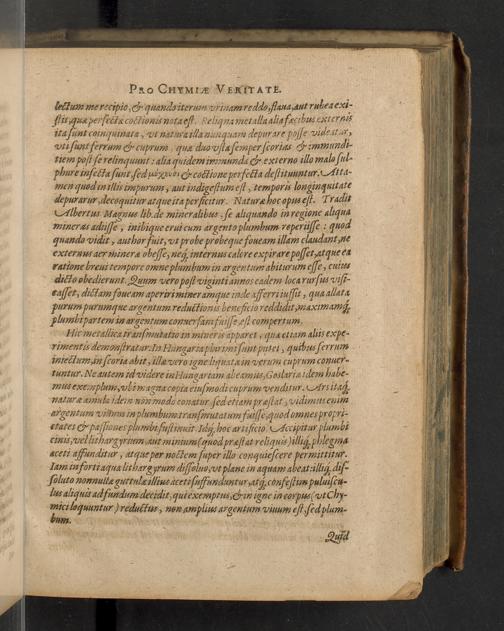 PRO CHYMIÆ VERITATE.
lectum me recipio, & quando iterum vrinam reddo, flaua, aut rubea exi-
stit quæ perfectæ coctionis nota est. Reliqua metalla alia fæcibus externis
ita sunt coinquinata, vt natura illa nunquam depurare posse videatur,
vti sunt ferrum & cuprum, quæ duo vsta semper scorias & immundi-
tiem post se relinquunt: alia quidem immunda & externo illo malo sul-
phure infecta sunt, sed & coctione perfecta destituuntur. Atta-
men quod in illis impurum, aut indigestum est, temporis longinquitate
depuratur, decoquitur atque ita perficitur. Naturæ hoc opus est. Tradit
Albertus Magnus lib. de mineralibus, se aliquando in regione aliqua
mineras adiisse, inibique erui cum argento plumbum reperiisse: quod
quando vidit, author fuit, vt probe probeque foueam illam claudant, ne
externus aer minera obesse, neq; internus calore expirare posset, atque ea
ratione breui tempore omne plumbum in argentum abiturum esse, cuius
dicto obedierunt. Quum vero post viginti annos eadem loca rursus visi-
tasset, dictam foueam aperiri mineramque inde afferri iussit, qua allata
purum purumque argentum reductionis beneficio reddidit, maximamq;
plumbi partem in argentum conuersam fuisse est compertum.
Hic metallica transmutatio in mineris apparet, qua etiam aliis expe-
rimentis demonstratur. In Hungaria plurimi sunt putei, quibus ferrum
iniectum, in scoria abit, illa vero igne liquata in verum cuprum conuer-
tuntur. Ne autem id videre in Hungariam abeamus, Goslaria idem habe-
mus exemplum, vbi magna copia eiusmodi cuprum venditur. Ars itaq;
naturæ æmula idem non modo conatur, sed etiam præstat, vidimus enim
argentum viuum in plumbum transmutatum fuisse, quod omnes propri-
etates & passiones plumbi sustinuit. Idq; hoc artificio. Accipitur plumbi
cinis, vel lithargyrium, aut minium (quod præstat reliquis) illiq; phlegma
aceti affunditur, atque per noctem super illo conquiescere permittitur.
Iam in forti aqua lithargyrum dissoluo, vt plane in aquam abeat: illiq; dis-
soluto nonnullæ guttulæ illius aceti suffunduntur, atq; confestim puluiscu-
lus aliquis ad fundum decidit, qui exemptus, & in igne in corpus (vt Chy-
mici loquuntur) reductus, non amplius argentum viuum est, sed plum-
bum.
Quid